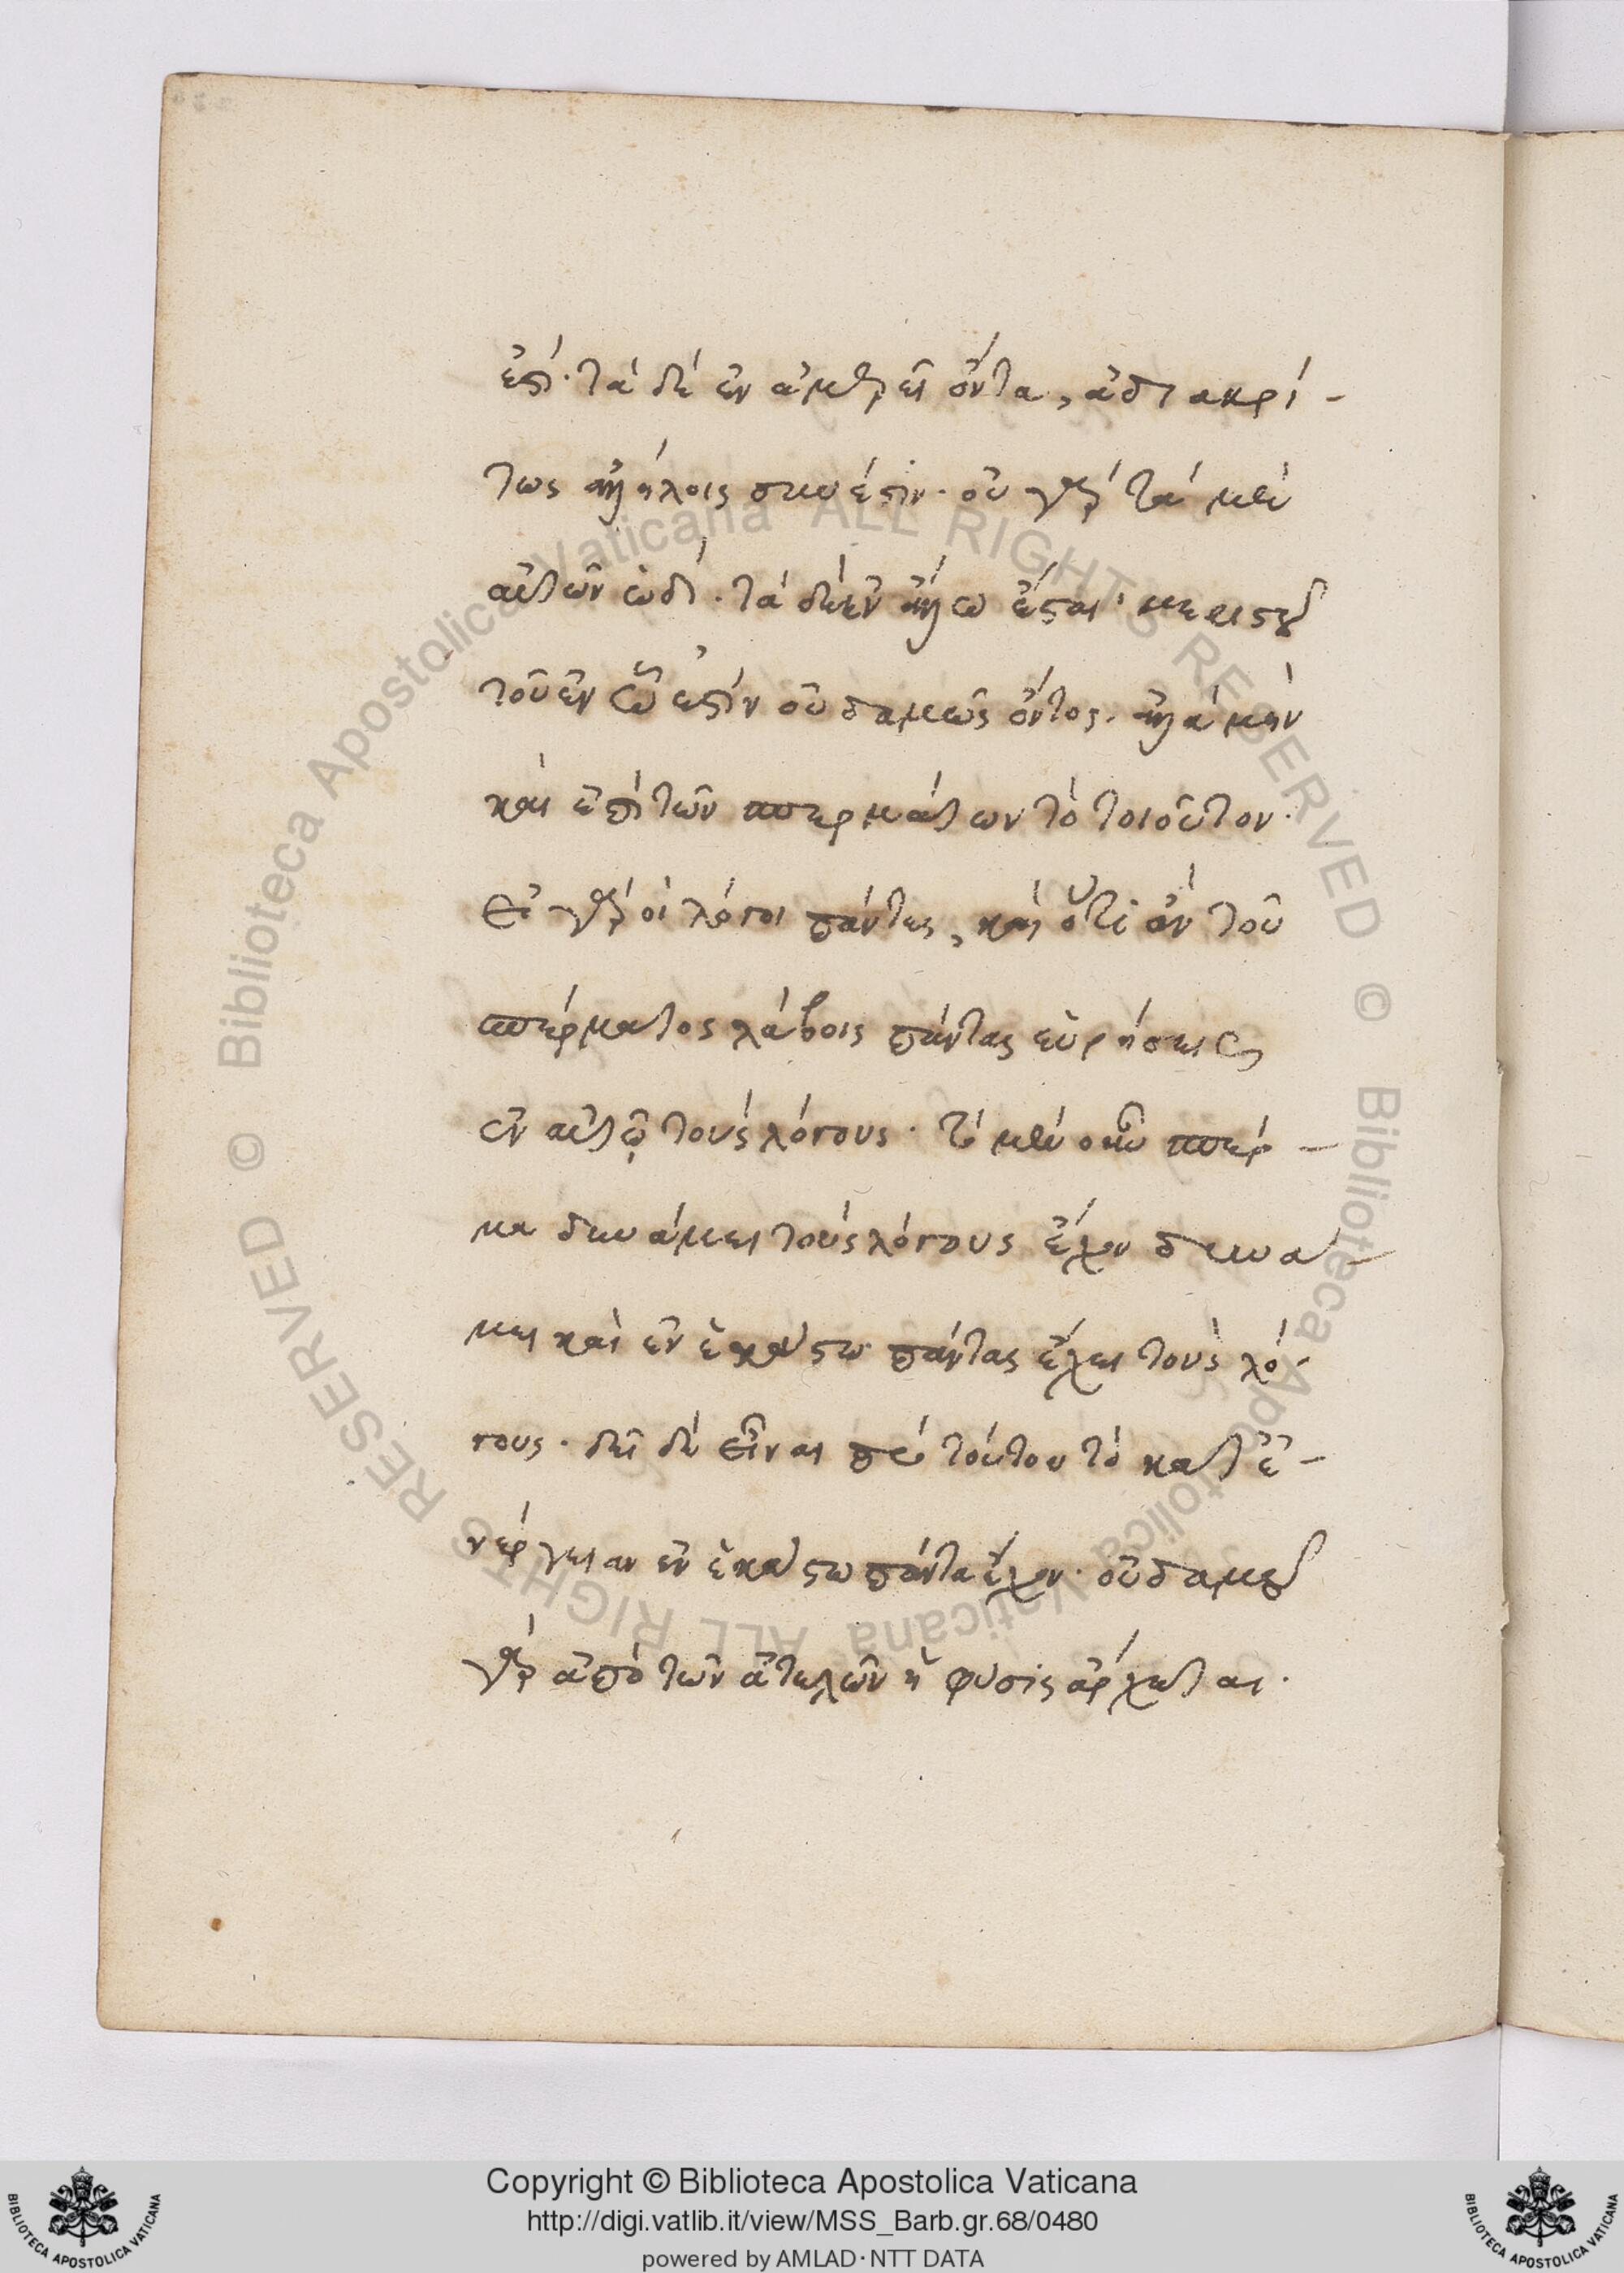 ἐστί· τὰ δὲ ἐν ἀμερεῖ ὄντα, ἀδιακρί-
τως ἀλλήλοις σύνεστιν· οὐ γὰρ τὰ μὲν
αὐτῶν ὡδί· τὰ δὲ ἐν ἄλλω ἔσται· μεριστοῦ
τοῦ ἐν ᾧ ἐστὶν οὐδαμῶς ὄντος· ἀλλὰ μὴν
καὶ ἐπὶ τῶν σπερμάτων τὸ τοιοῦτον·
εἰ γὰρ οἱ λόγοι πάντες, καὶ ὅτι ἂν τοῦ
σπέρματος λάβοις πάντας εὑρήσεις
ἐν αὐτῷ τοὺς λόγους· τὸ μὲν οὖν σπέρ-
μα δυνάμει τοὺς λόγους ἔχον δυνά-
μει καὶ ἐν ἑκάστω πάντας ἔχει τοὺς λό-
γους· δεῖ δὲ εἶναι πρὸ τούτου τὸ κατ' ἐ-
νέργειαν ἐν ἑκάστω πάντα ἔχον· οὐδαμοῦ
γὰρ ἀπὸ τῶν ἀτελῶν ἡ φύσις ἄρχεται·
© Biblioteca Apostolica Vaticana ALL RIGHTS RESERVED © Biblioteca Apostolica Vaticana ALL RIGHTS RESERVED
Copyright © Biblioteca Apostolica Vaticana
http://digi.vatlib.it/view/MSS_Barb.gr.68/0480
powered by AMLAD·NTT DATA
BIBLIOTECA APOSTOLICA VATICANA
BIBLIOTECA APOSTOLICA VATICANA